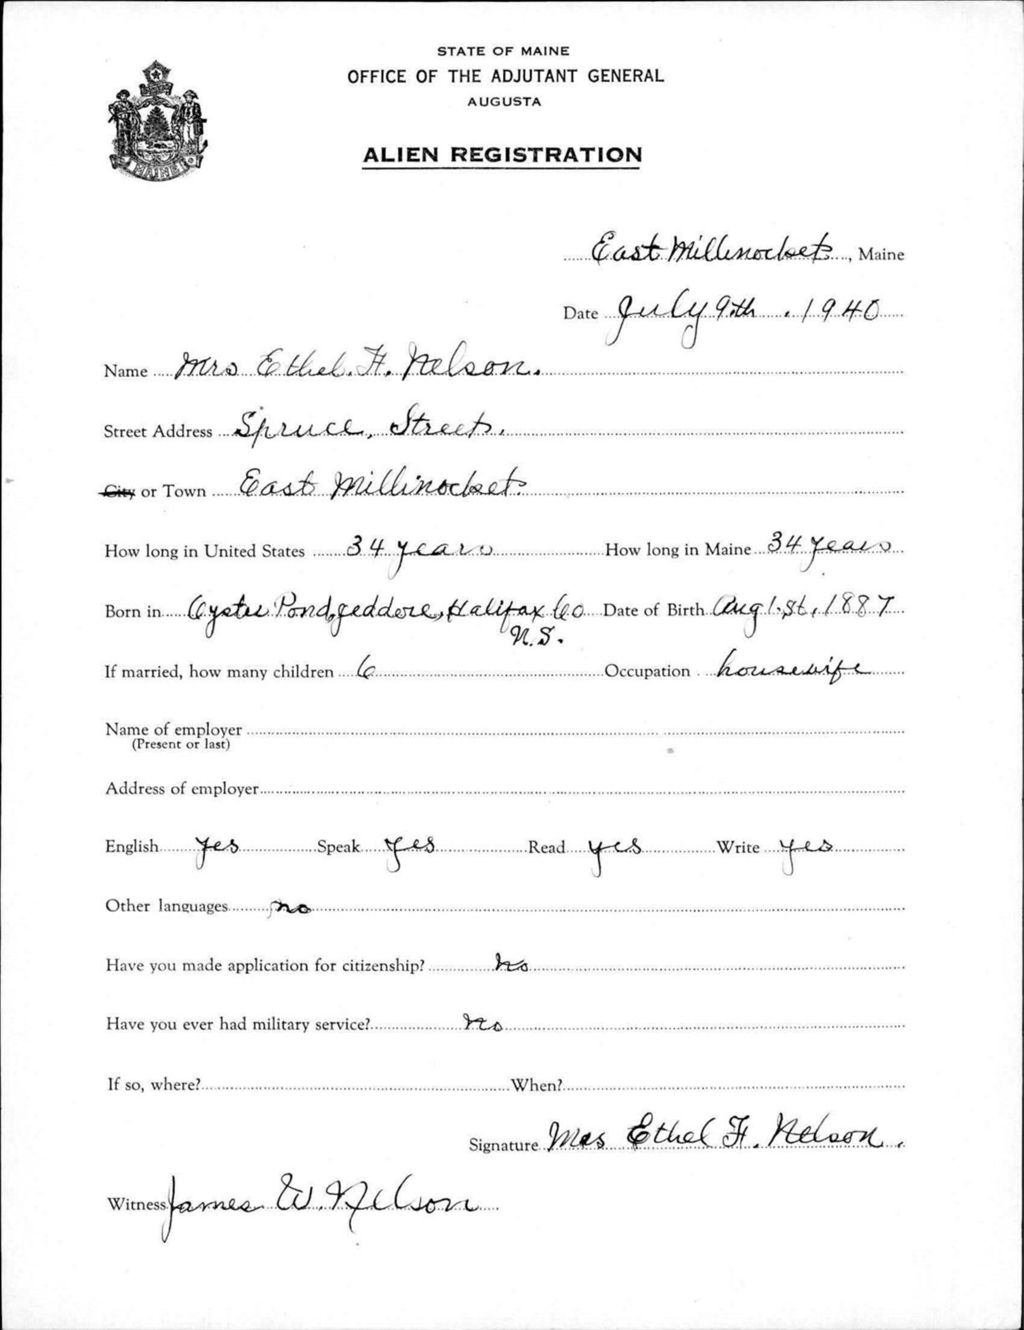 STATE OF MAINE
OFFICE OF THE ADJUTANT GENERAL
AUGUSTA
ALIEN REGISTRATION
MAINE
East Millinocket, Maine
Date July 9th. 1940
Name Mrs Ethel. H. Nelson.
Street Address Spruce, Street.
City or Town East Millinocket
How long in United States 34 years How long in Maine 34 years
Born in Oyster Pond, Jeddore, Halifax Co Date of Birth Aug 1.st, 1887
N.S.
If married, how many children 6 Occupation housewife
Name of employer
(Present or last)
Address of employer
English yes Speak yes Read yes Write yes
Other languages no
Have you made application for citizenship? no
Have you ever had military service? no
If so, where? When?
Signature Mrs Ethel H. Nelson.
Witness James W. Nelson